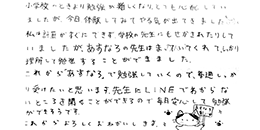 小学校のときより勉強が難しくなりしても心がしてい
ましたが、今日体験してみてやる気が出てきました。
私は計算がすぐにできず、学校の先生にもせかされたりして
いましたが、あすなろの先生はまっていてくれて、しっかり
理解して勉強することができました。
これから「あすなろ」で勉強していくので、夢通しっか
り受けたいと思います。先生にLINEで分からな
いところを聞くことができるので毎日安心して勉強
ができそうです。
これからよろしくおねがいします。